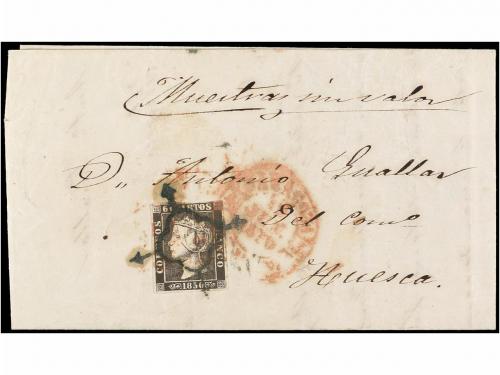 Muestras sin valor
Dn Antonio Guallar
Del Como
Huesca.
CORREOS
6 CUARTOS
FRANCO
1850